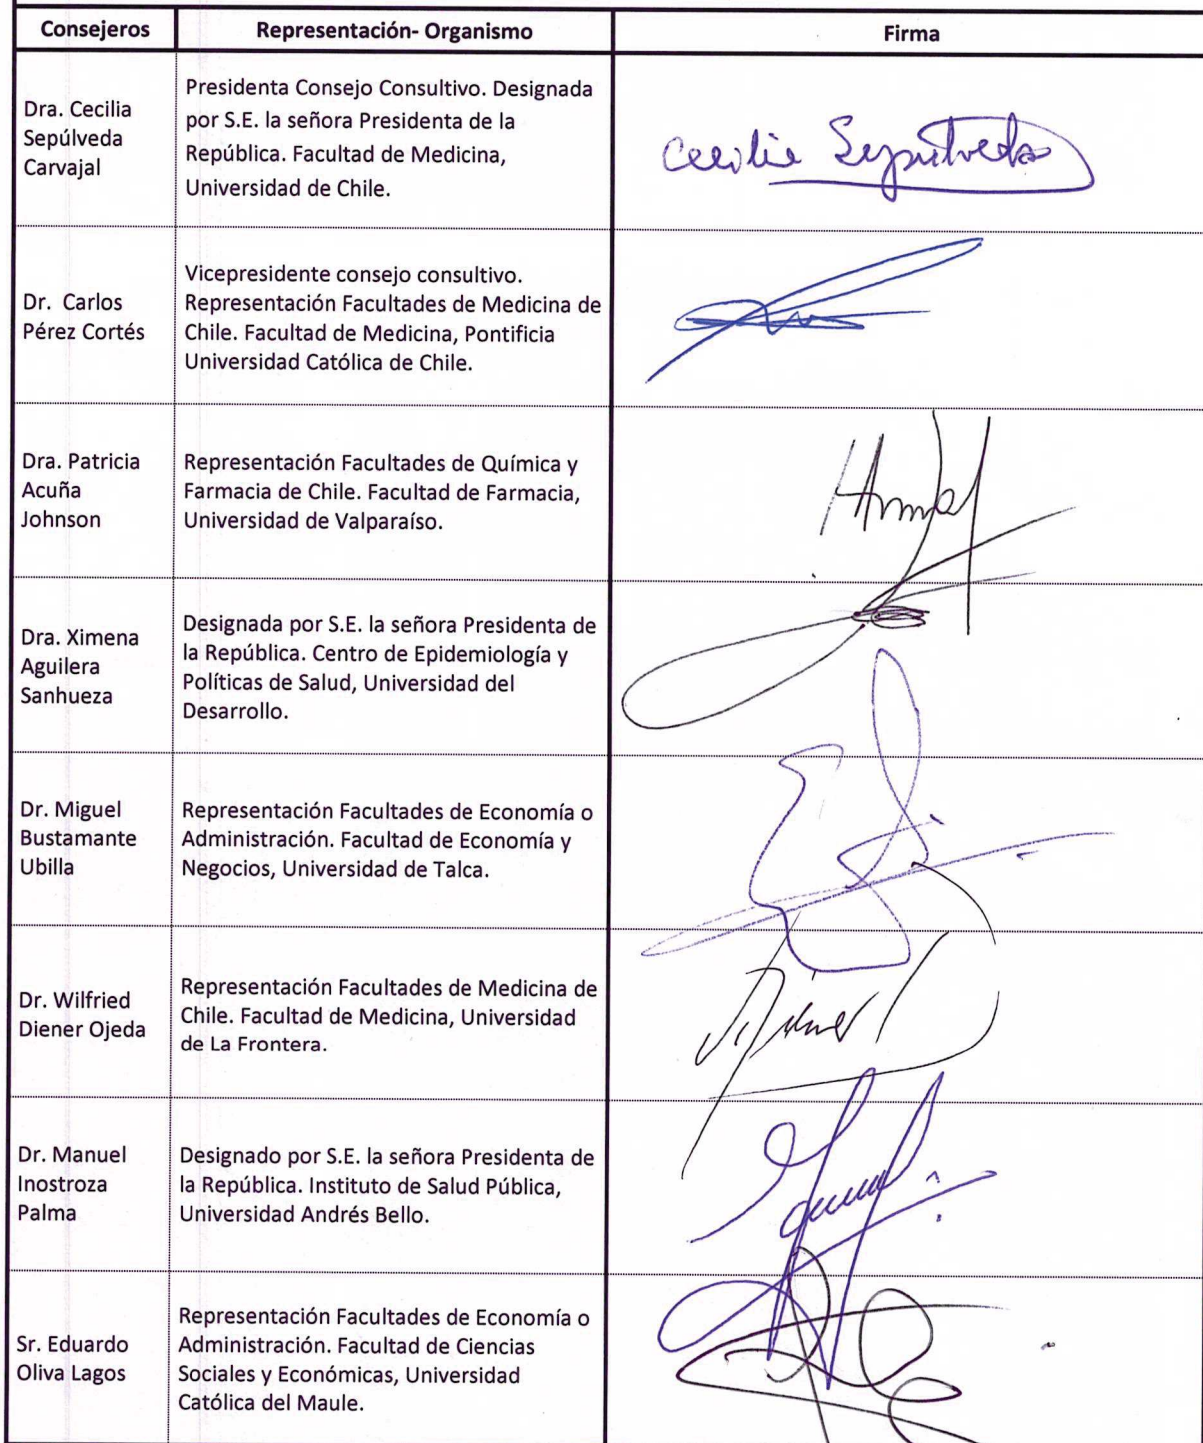 Consejeros Representación- Organismo Firma
Dra. Cecilia
Sepúlveda
Carvajal
Presidenta Consejo Consultivo. Designada
por S.E. la señora Presidenta de la
República. Facultad de Medicina,
Universidad de Chile.
Cecilia Sepúlveda
Dr. Carlos
Pérez Cortés
Vicepresidente consejo consultivo.
Representación Facultades de Medicina de
Chile. Facultad de Medicina, Pontificia
Universidad Católica de Chile.
Dra. Patricia
Acuña
Johnson
Representación Facultades de Química y
Farmacia de Chile. Facultad de Farmacia,
Universidad de Valparaíso.
Dra. Ximena
Aguilera
Sanhueza
Designada por S.E. la señora Presidenta de
la República. Centro de Epidemiología y
Políticas de Salud, Universidad del
Desarrollo.
Dr. Miguel
Bustamante
Ubilla
Representación Facultades de Economía o
Administración. Facultad de Economía y
Negocios, Universidad de Talca.
Dr. Wilfried
Diener Ojeda
Representación Facultades de Medicina de
Chile. Facultad de Medicina, Universidad
de La Frontera.
Dr. Manuel
Inostroza
Palma
Designado por S.E. la señora Presidenta de
la República. Instituto de Salud Pública,
Universidad Andrés Bello.
Sr. Eduardo
Oliva Lagos
Representación Facultades de Economía o
Administración. Facultad de Ciencias
Sociales y Económicas, Universidad
Católica del Maule.